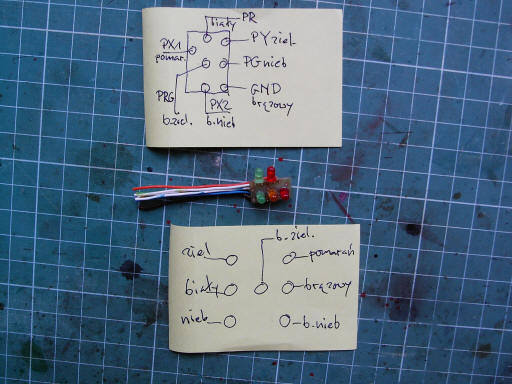 PR
biały
PX1
pomar.
PY ziel.
PG nieb
PRG
b.ziel.
GND
brązowy
PX2
b.nieb
b.ziel.
ziel
pomarań
biały
brązowy
nieb
b.nieb